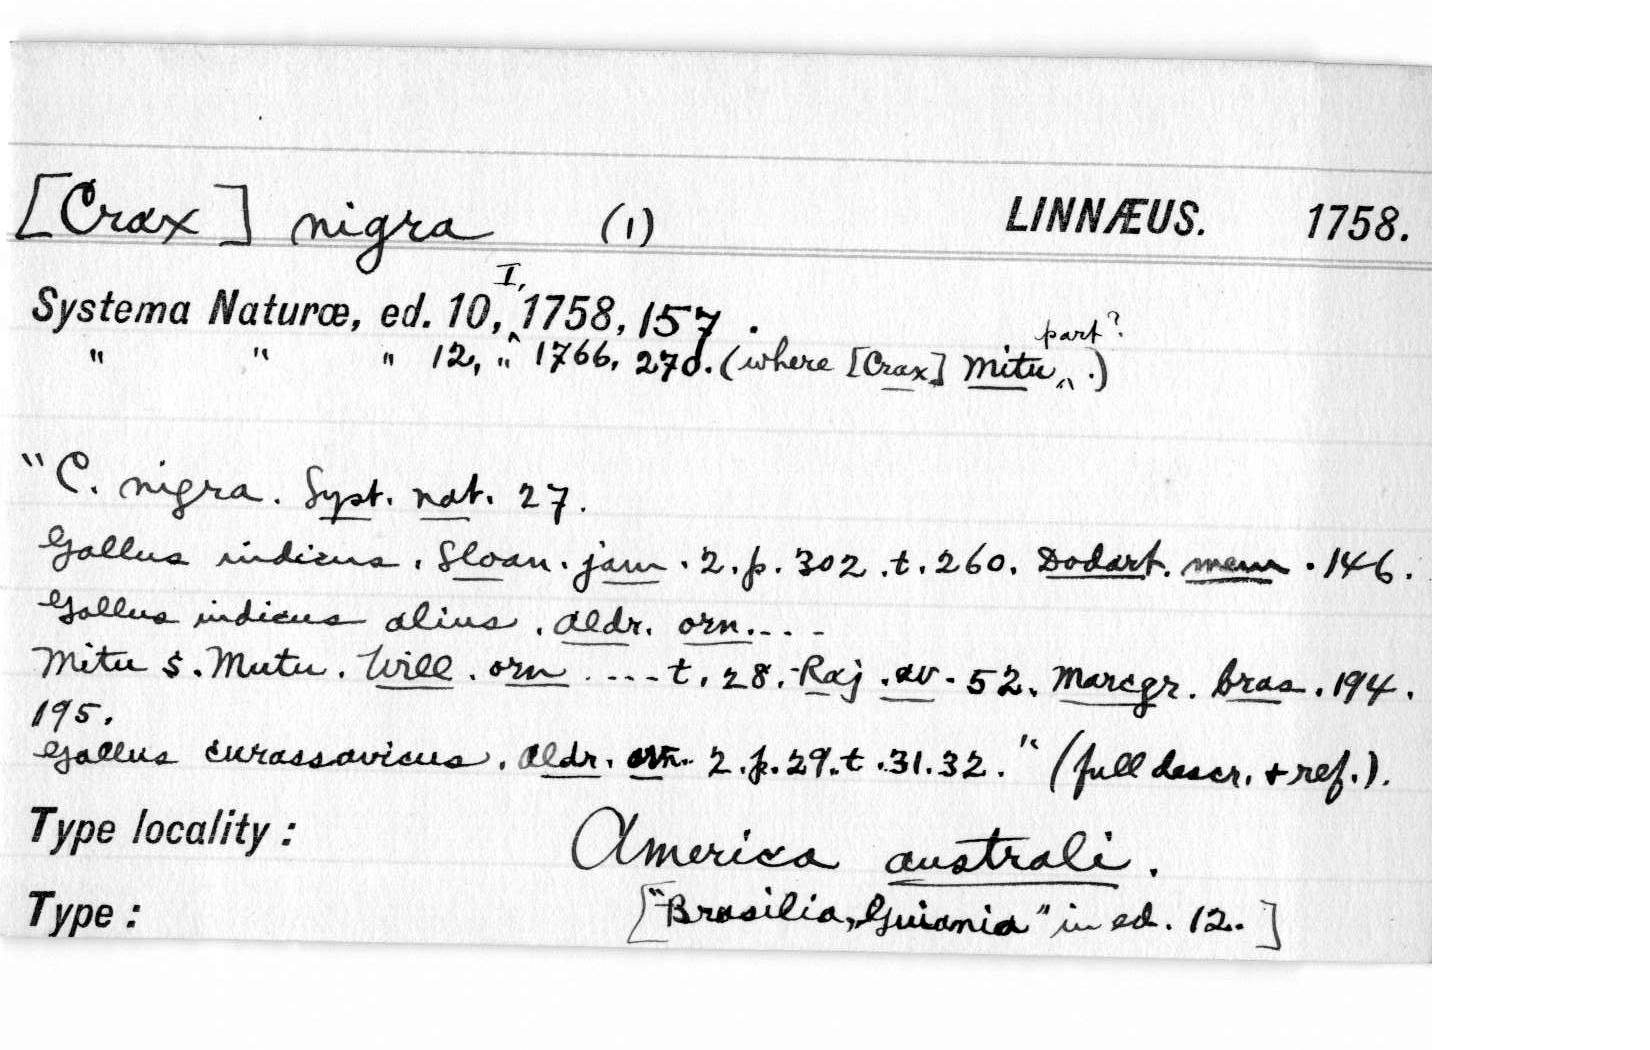 [Crax] nigra (1) LINNÆUS. 1758.
Systema Naturæ, ed. 10, I, 1758, 157.
" " " 12, " 1766, 270. (where [Crax] Mitu part?.)
"C. nigra. Syst. nat. 27.
Gallus indicus. Sloan. jam. 2. p. 302. t. 260. Dodart. mem. 146.
Gallus indicus alius. Aldr. orn. - - -
Mitu s. Mutu. Will. orn ....t. 28. Raj. av. 52. Marcgr. bras. 194.
195.
Gallus curassavicus. Aldr. orn. 2. p. 29. t. 31. 32." (full descr. + ref.).
Type locality: America australi.
Type: ["Brasilia, Guiania" in ed. 12.]